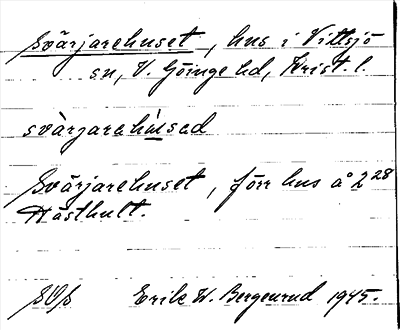 Svärjarehuset, hus i Vittsjö
sn, V. Göinge hd, Krist. l.
svärjarehused
Svärjarehuset, förr hus å 2 28
Hästhult.
Erik W. Bergenrud 1945.